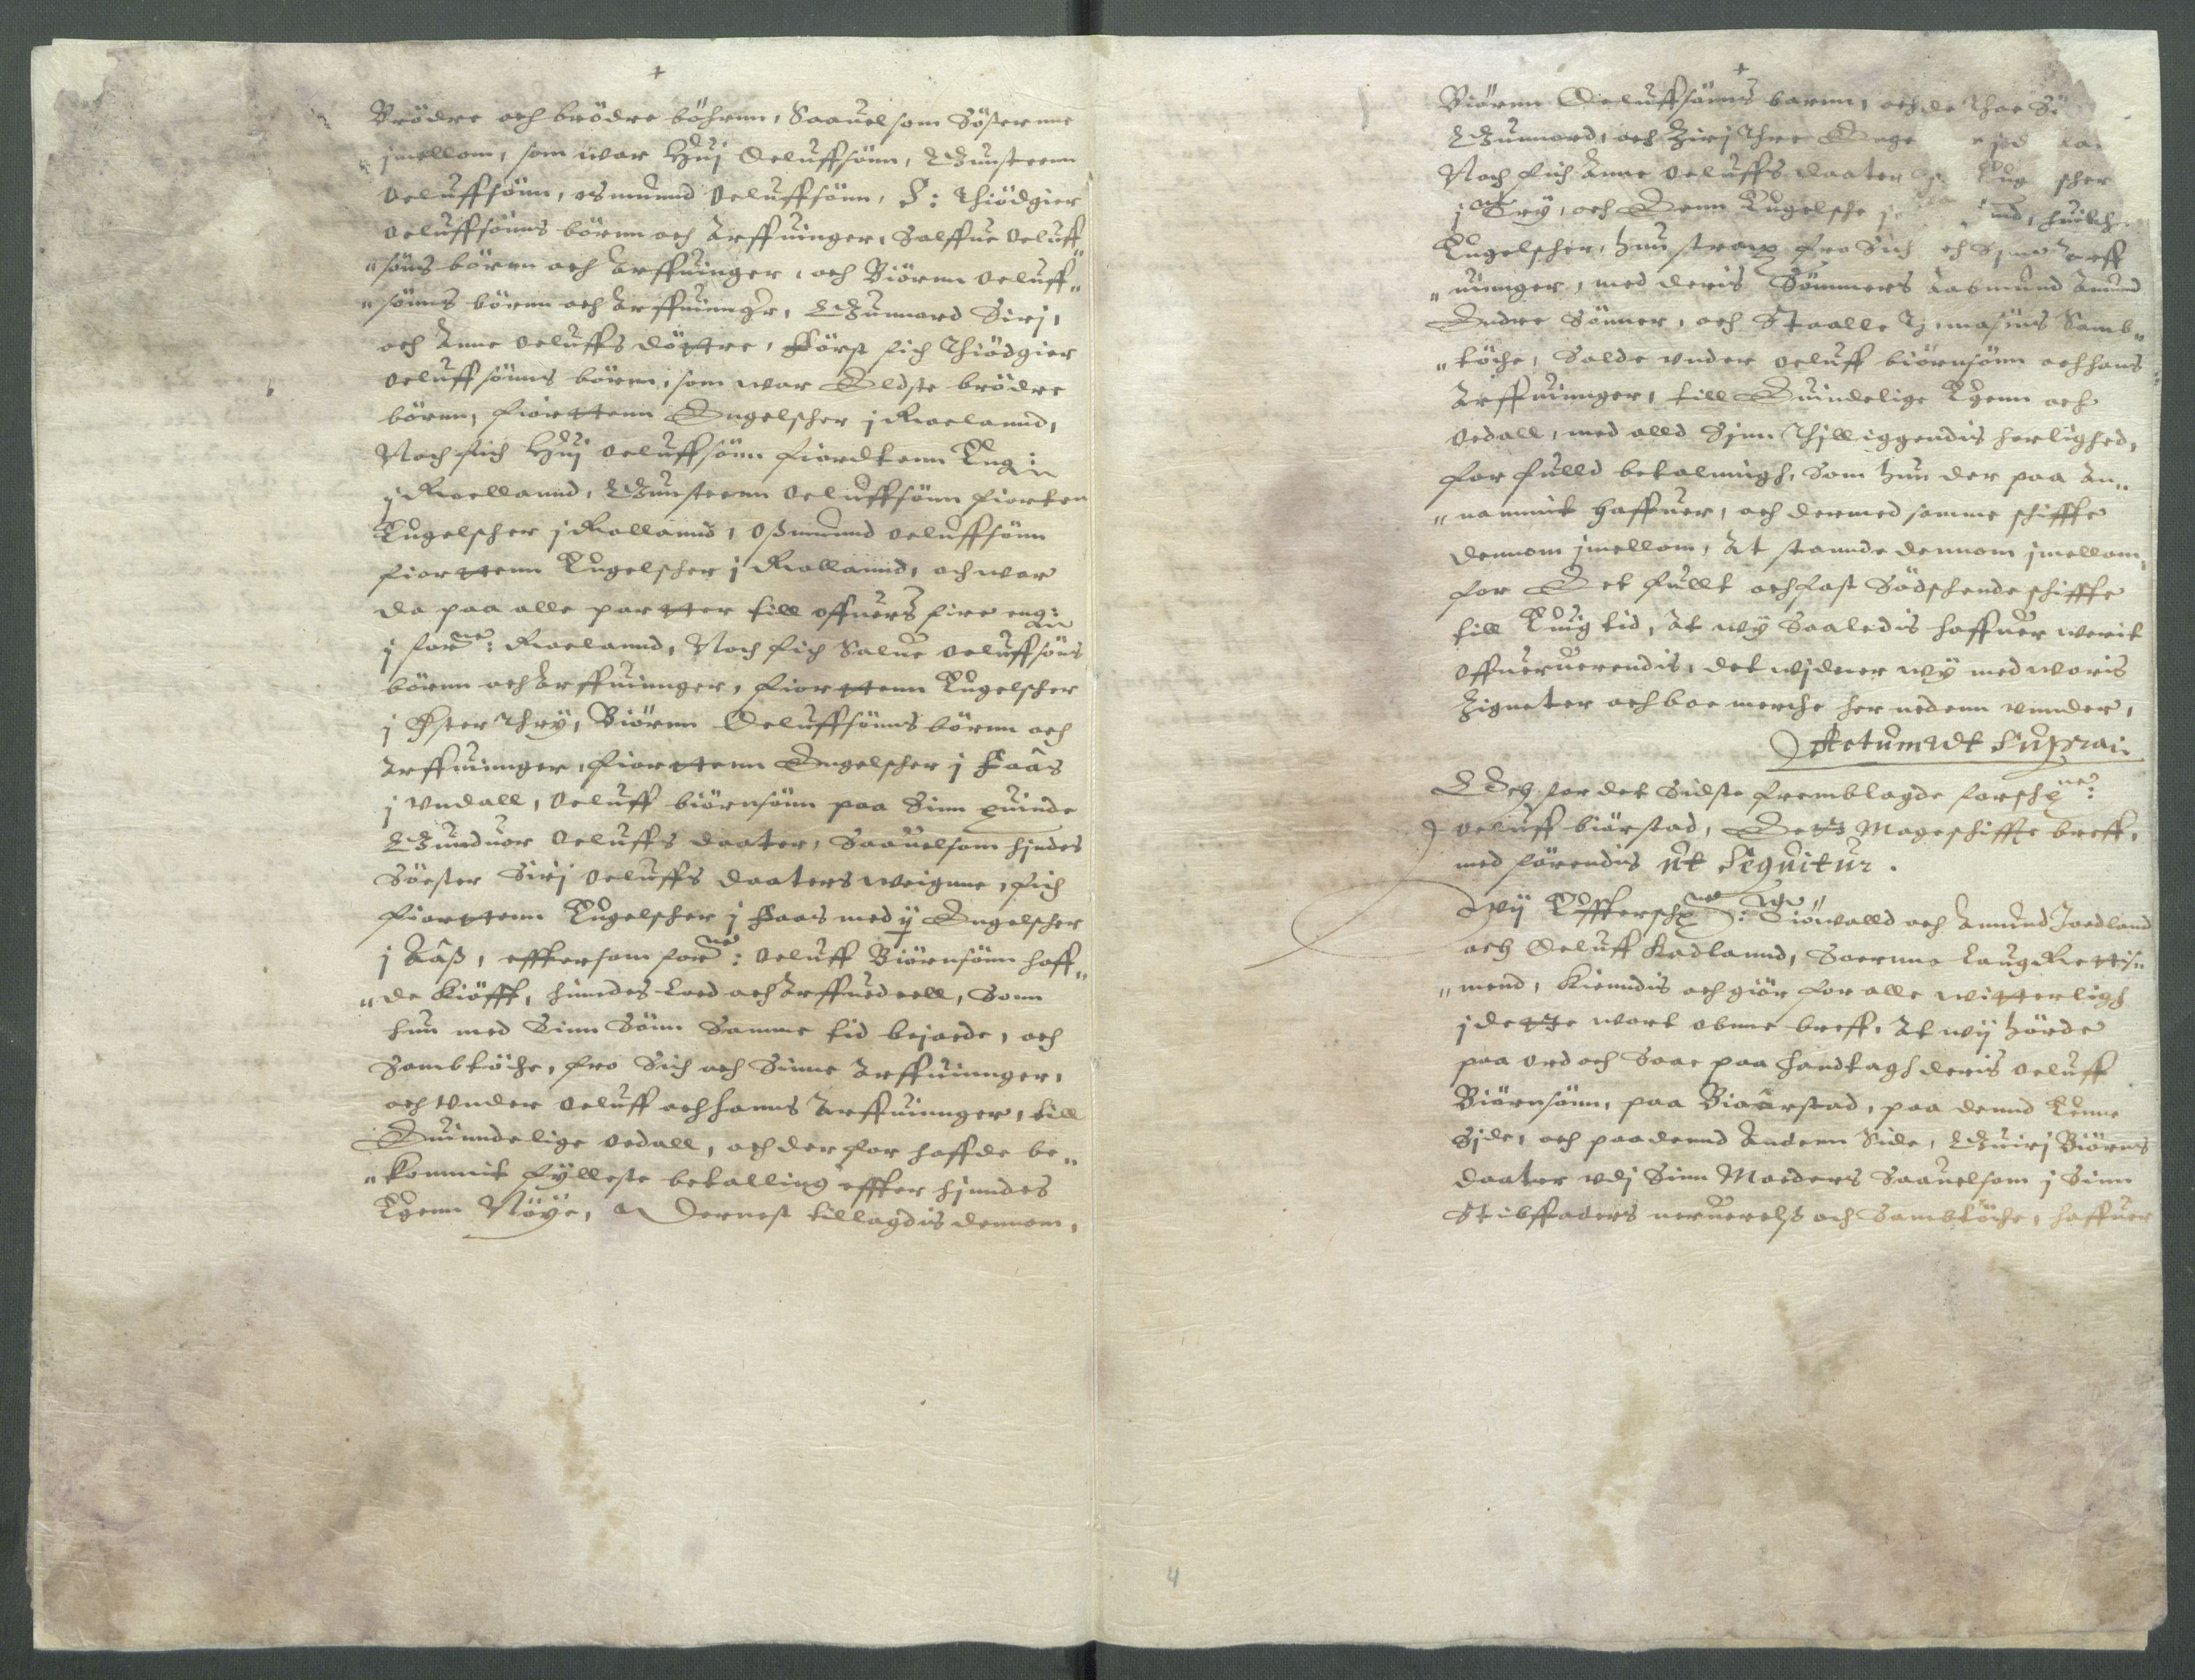 +
Brödre och brödre böhrnn, Saauelsom Sösterne
jmellom, som war Huj Oeluffsönn, Gunsteenn
Oeluffsönn, osmunnd Oeluffsönn, S: Thiödgier
Oeluffsönns börnn och Arffuinger, Salffue Oeluff
"söns börnn och Arffuinger, och Biörnn Oeluff„
"sönns börnn och Arffuinngr, Gunnord Sirj,
och Anne Oeluffs döttre, Först fich Thiödgier
Oeluffsönns börnn, som war Eldste brödre
börnn, fiorttenn Engelscher j Roelannd,
Noch fich Huj Oeluffsönn fiordtenn Eng:
j Roellannd, Gunsteenn Oeluffsönn fiorten
Engelscher j Rollannd, Oßmunnd Oeluffsönn
fiorttenn Engelscher j Rollannd, och war
da paa alle partter till offuers fire eng:
j forne: Roelannd, Noch fich Salue Oeluffsöns
börnn och Arffuinnger, fiorttenn Engelscher
j Öster Thrÿ, Biörnn Oeluffsönns börnn och
Arffuinnger, fiorttenn Engelscher j Faas
j Undall, Oeluff biörnsönn paa Sinn quinde
Gunduor Oeluffs daater, Saauelsom hindes
Söester Sirj Oeluffs daaters weignne, fich
fiorttenn Engelscher j Faas med ij Engelscher
j Aaß, effter som forne: Oeluff Biörnsönn haff„
"de kiöfft, hinndes Loed och Arffuedeell, Som
hun med Sinn Sönn Samme tid bejaede, och
Sambtöche, fro Sich och Sinne Arffuinnger,
och Under Oeluff och hanns Arffuinnger, till
Euinndelige Oedall, och der for haffde be„
"kommit fÿlleste betalling effter hinndes
Egenn Nöÿe, Dernest tillagdis dennom,
+
Biörnn Oeluffsönns barnn, och de Thoe Sö
Gunnord, och Sirj Thre Enge
Noch fich Anne Oeluffs daater Eng scher
j Trÿ, och Fenn Engelsche j nd, huilche
Engelscher, hun strax fro Sich och Sinne Arff
"uinnger, med deris Sönners Aabmund Amund
Endre Sönner, och Staalle Samb„
"töche, Solde under Oeluff biörnsönn och hans
Arffuinnger, till Euindelige Egenn och
Oedall, med alld Sinn Thilliggendis herlighed,
for fulld betalningh, Som hun der paa An„
"nammit haffuer, och dermed samme schiffte
dennom jmellom, At stannde dennom jmellom,
for Eet fullt och fast Södschende schiffte
till Euig tid, At wÿ Saaledis haffuer werit
Offueruerendis, det widner wÿ med woris
Zigneter och boe merche her nedenn unnder,
Actum Vt Supra
Och for det Sidste fremblagde forschne:
Oeluff biörstad, Eett Mageschiffte breff,
med förendis ut Sequitur.
Wij Effterschne: Siöwalld och Amund Joedland
och Oeluff Kadlannd, Soernne Laug Rettis„
"mend, Kiendis och giör for alle witterligh
j dette wort obnne breff, At wij hörde
paa ord och Saae paa handtagh deris Oeluff
Biörnsönn, paa Biaarstad, paa dennd Enne
Side, och paa dennd Andenn Side, Guirj Biörns
daater udj Sinn Moeders Saauelsom j Sinn
Stibffaders neruerelß och Sambtöche, haffuer
4